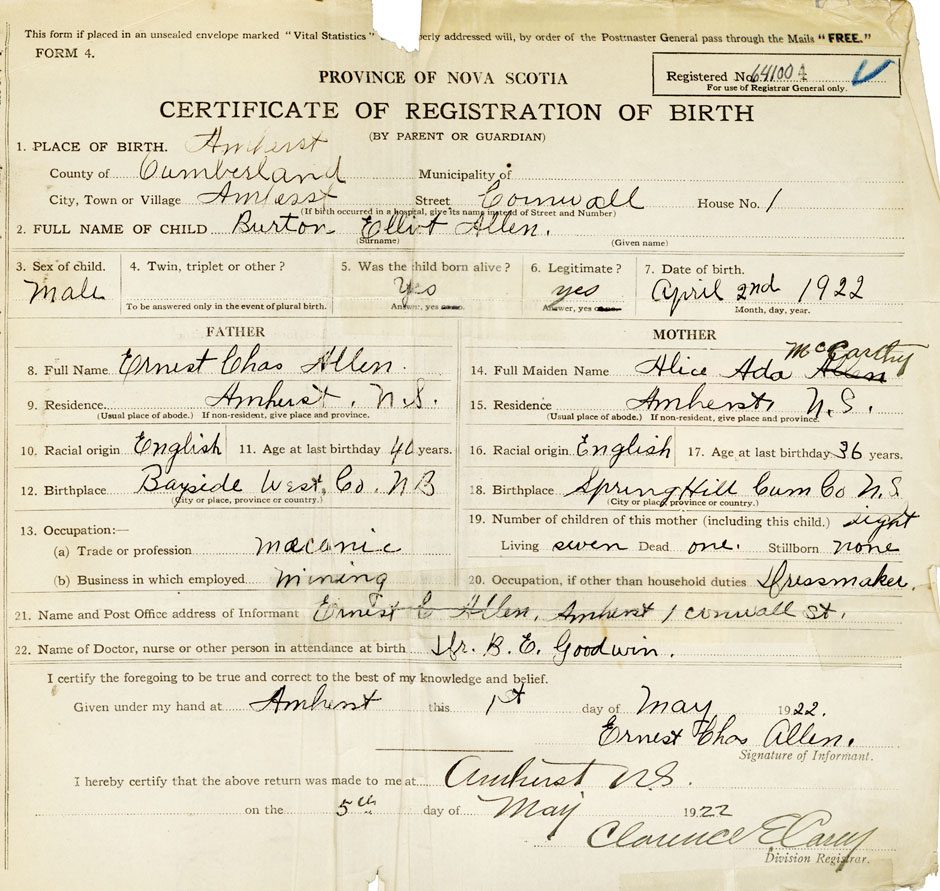 This form if placed in an unsealed envelope marked "Vital Statistics" erly addressed will, by order of the Postmaster General pass through the Mails "FREE."
FORM 4.
Registered No. 641004
For use of Registrar General only.
PROVINCE OF NOVA SCOTIA
CERTIFICATE OF REGISTRATION OF BIRTH
(BY PARENT OR GUARDIAN)
1. PLACE OF BIRTH. Amherst
County of Cumberland Municipality of
City, Town or Village Amherst Street Cornwall House No. 1
(If birth occurred in a hospital, give its name instead of Street and Number)
2. FULL NAME OF CHILD Burton Elliot Allen.
(Surname) (Given name)
3. Sex of child. 4. Twin, triplet or other? 5. Was the child born alive? 6. Legitimate? 7. Date of birth.
Male Yes yes April 2nd 1922
To be answered only in the event of plural birth. Answer, yes Answer, yes Month, day, year.
FATHER
8. Full Name Ernest Chas Allen.
9. Residence Amherst, N.S.
(Usual place of abode.) If non-resident, give place and province.
10. Racial origin English 11. Age at last birthday 40 years.
12. Birthplace Bayside West. Co. NB
(City or place, province or country.)
13. Occupation:—
(a) Trade or profession macanic
(b) Business in which employed mining
MOTHER
McCarthy
14. Full Maiden Name Alice Ada Allen
15. Residence Amherst, N.S.
(Usual place of abode.) If non-resident, give place and province.
16. Racial origin English 17. Age at last birthday 36 years.
18. Birthplace Spring Hill Cum Co N.S
(City or place, province or country.)
19. Number of children of this mother (including this child.) eight
Living seven Dead one. Stillborn none
20. Occupation, if other than household duties Dressmaker.
21. Name and Post Office address of Informant Ernest C Allen, Amherst 1 cornwall st.
22. Name of Doctor, nurse or other person in attendance at birth Dr. B. E. Goodwin.
I certify the foregoing to be true and correct to the best of my knowledge and belief.
Given under my hand at Amherst this 1st day of May 1922.
Ernest Chas Allen.
Signature of Informant.
I hereby certify that the above return was made to me at Amherst N.S.
on the 5th day of May 1922
Clarence E Carey
Division Registrar.